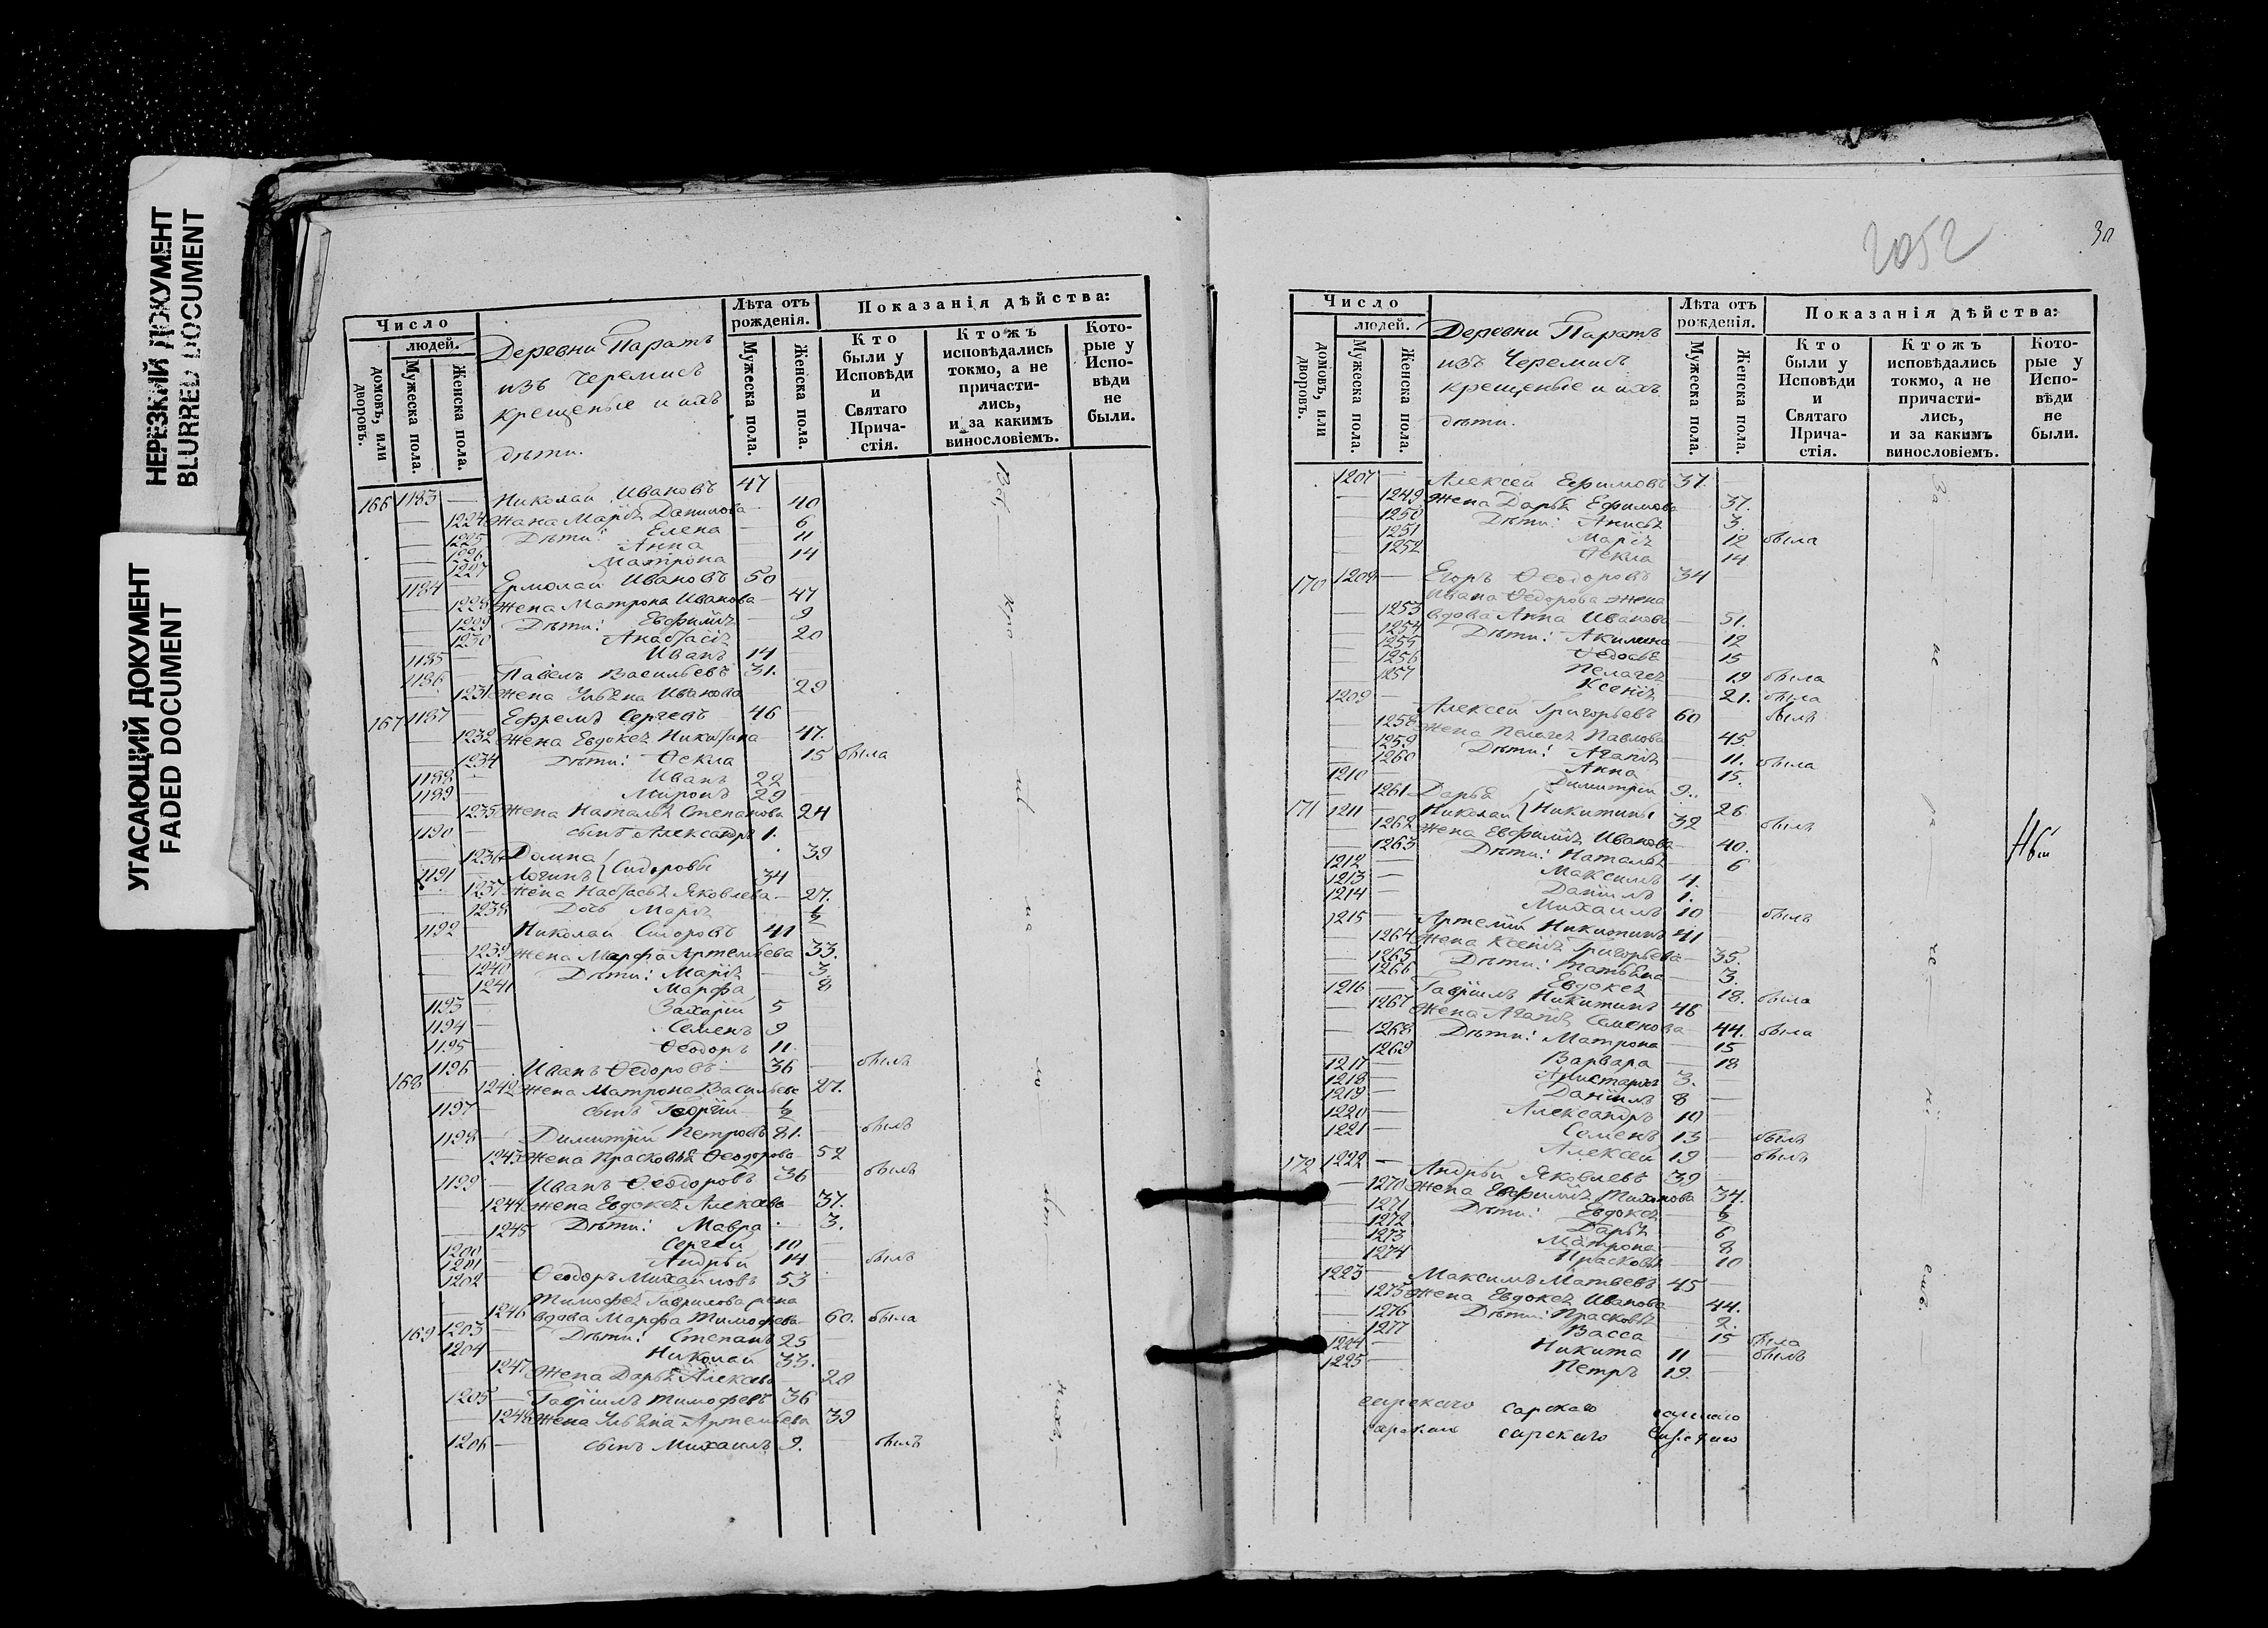 НЕРЕЗКИЙ ДОКУМЕНТ
BLURRED DOCUMENT
УГАСАЮЩИЙ ДОКУМЕНТ
FADED DOCUMENT
Число
людей.
домовъ, или дворовъ.
Мужеска пола.
Женска пола.
Деревни Паратъ
изъ Черемисъ
крещеные и ихъ
дѣти.
Лѣта отъ рожденія.
Мужеска пола.
Женска пола.
Показанія дѣйства:
Кто были у Исповѣди и Святаго Прича-стія.
Ктожъ исповѣдались токмо, а не причасти-лись, и за какимъ винословіемъ.
Кото-рые у Испо-вѣди не были.
166 1183 — Николай Ивановъ 47 —
— 1224 Жена Марія Данилова — 40
— 1225 Дѣти: Елена — 6
— 1226 Анна — 11
— 1227 Матрона — 14
1184 — Ермолай Ивановъ 50 —
— 1228 Жена Матрона Иванова — 47
— 1229 Дѣти: Евфимія — 9
— 1230 Анастасія — 20
1185 — Иванъ 14 —
1186 — Павелъ Васильевъ 31. —
1231 Жена Ульяна Иванова — 29
167 1187 — Ефремъ Сергеевъ 46 —
— 1232 Жена Евдокея Никитина — 47.
— 1234 Дѣти: Ѳекла 15 была
1188 — Иванъ 22
1189 — Миронъ 29 —
— 1235 Жена Наталья Степанова 24
1190 — сынъ Александръ 1. —
— 1236 Домна 39
1191 — Логинъ } Сидоровы 34
1237 Жена Настасья Яковлева — 27.
— 1238 Дочь Марія ½
1192 — Николай Сидоровъ 41 —
— 1239 Жена Марфа Артемьева 33.
— 1240 Дѣти: Марія — 3.
— 1241 Марфа — 8
1193 — Захарій 5 —
1194 — Семенъ 9 —
1195 — Ѳеодоръ 11. —
168 1196 — Иванъ Ѳедоровъ — 36 — былъ
1242 Жена Матрона Васильева 27.
1197 — сынъ Георгій ½ —
1198 — Димитрій Петровъ 81. — былъ
— 1243 Жена Прасковья Ѳеодорова — 52
1199 — Иванъ Ѳеодоровъ 36 былъ
— 1244 Жена Евдокея Алексѣева 37.
— 1245 Дѣти: Мавра — 3.
1200 — Сергей 10 —
1201 — Андрѣй 14 — былъ
1202 — Ѳеодоръ Михайловъ 53 —
Тимофея Гаврилова жена
— 1246 вдова Марфа Тимофеева 60. была
169 1203 — Дѣти: Степанъ 25 —
1204 — Николай 33. —
— 1247 Жена Дарья Алексѣева 28
1205 — Гавріилъ Тимофеевъ 36
— 1248 Жена Ульяна Артемьева 39
1206 — сынъ Михаилъ 9. былъ
2052
30
Число
людей.
домовъ, или дворовъ.
Мужеска пола.
Женска пола.
Деревни Паратъ
изъ Черемисъ
крещеные и ихъ
дѣти.
Лѣта отъ рожденія.
Мужеска пола.
Женска пола.
Показанія дѣйства:
Кто были у Исповѣди и Святаго Прича-стія.
Ктожъ исповѣдались токмо, а не причасти-лись, и за какимъ винословіемъ.
Кото-рые у Испо-вѣди не были.
1207 — Алексѣй Ефимовъ 37. —
— 1249 Жена Дарья Ефимова — 37.
— 1250 Дѣти: Анисья — 3.
— 1251 Марія 12 была
— 1252 Ѳекла 14
170 1208 — Егоръ Ѳеодоровъ 34 —
Ивана Ѳедорова жена
— 1253 вдова Анна Иванова — 51.
— 1254 Дѣти: Акилина — 12
— 1255 Ѳедосья 15
— 1256 Пелагея 19 была
1257 Ксенія — 21. была
1209 — Алексей Григорьевъ 60 — былъ
— 1258 Жена Пелагея Павлова — 45.
— 1259 Дѣти: Агапія — 11. была
— 1260 Анна 15.
1210 — Димитрій 9.
— 1261 Дарья 26
171 1211 — Николай } Никитины 32 былъ
— 1262 Жена Евфимія Иванова — 40.
— 1263 Дѣти: Наталья 6
1212 — Максимъ 4. —
1213 — Даніилъ 1. —
1214 — Михаилъ 10 былъ
1215 — Артемій Никитинъ 41 —
— 1264 Жена Ксенія Григорьева — 35.
— 1265 Дѣти: Татьяна — 3.
— 1266 Евдокея 18. была
1216 — Гавріилъ Никитинъ 46
— 1267 Жена Агапія Семенова 44. была
— 1268 Дѣти: Матрона — 15
— 1269 Варвара — 18
1217 — Аристархъ 3. —
1218 — Даніилъ 8 —
1219 — Александръ 10 —
1220 — Семенъ 13 — былъ
1221 — Алексей 19 — былъ
172 1222 — Андрѣй Яковлевъ 39 —
— 1270 Жена Евфимія Тихонова 34.
— 1271 Дѣти: Евдокея ½
— 1272 Дарья — 6
— 1273 Матрона — 8
— 1274 Прасковья 10
1223 — Максимъ Матвеевъ 45 —
— 1275 Жена Евдокея Иванова 44.
— 1276 Дѣти: Прасковья 2.
— 1277 Васса 15 была
1224 — Никита 11 — былъ
1225 — Петръ 19. —
сарскаго сарскаго
сарскаго